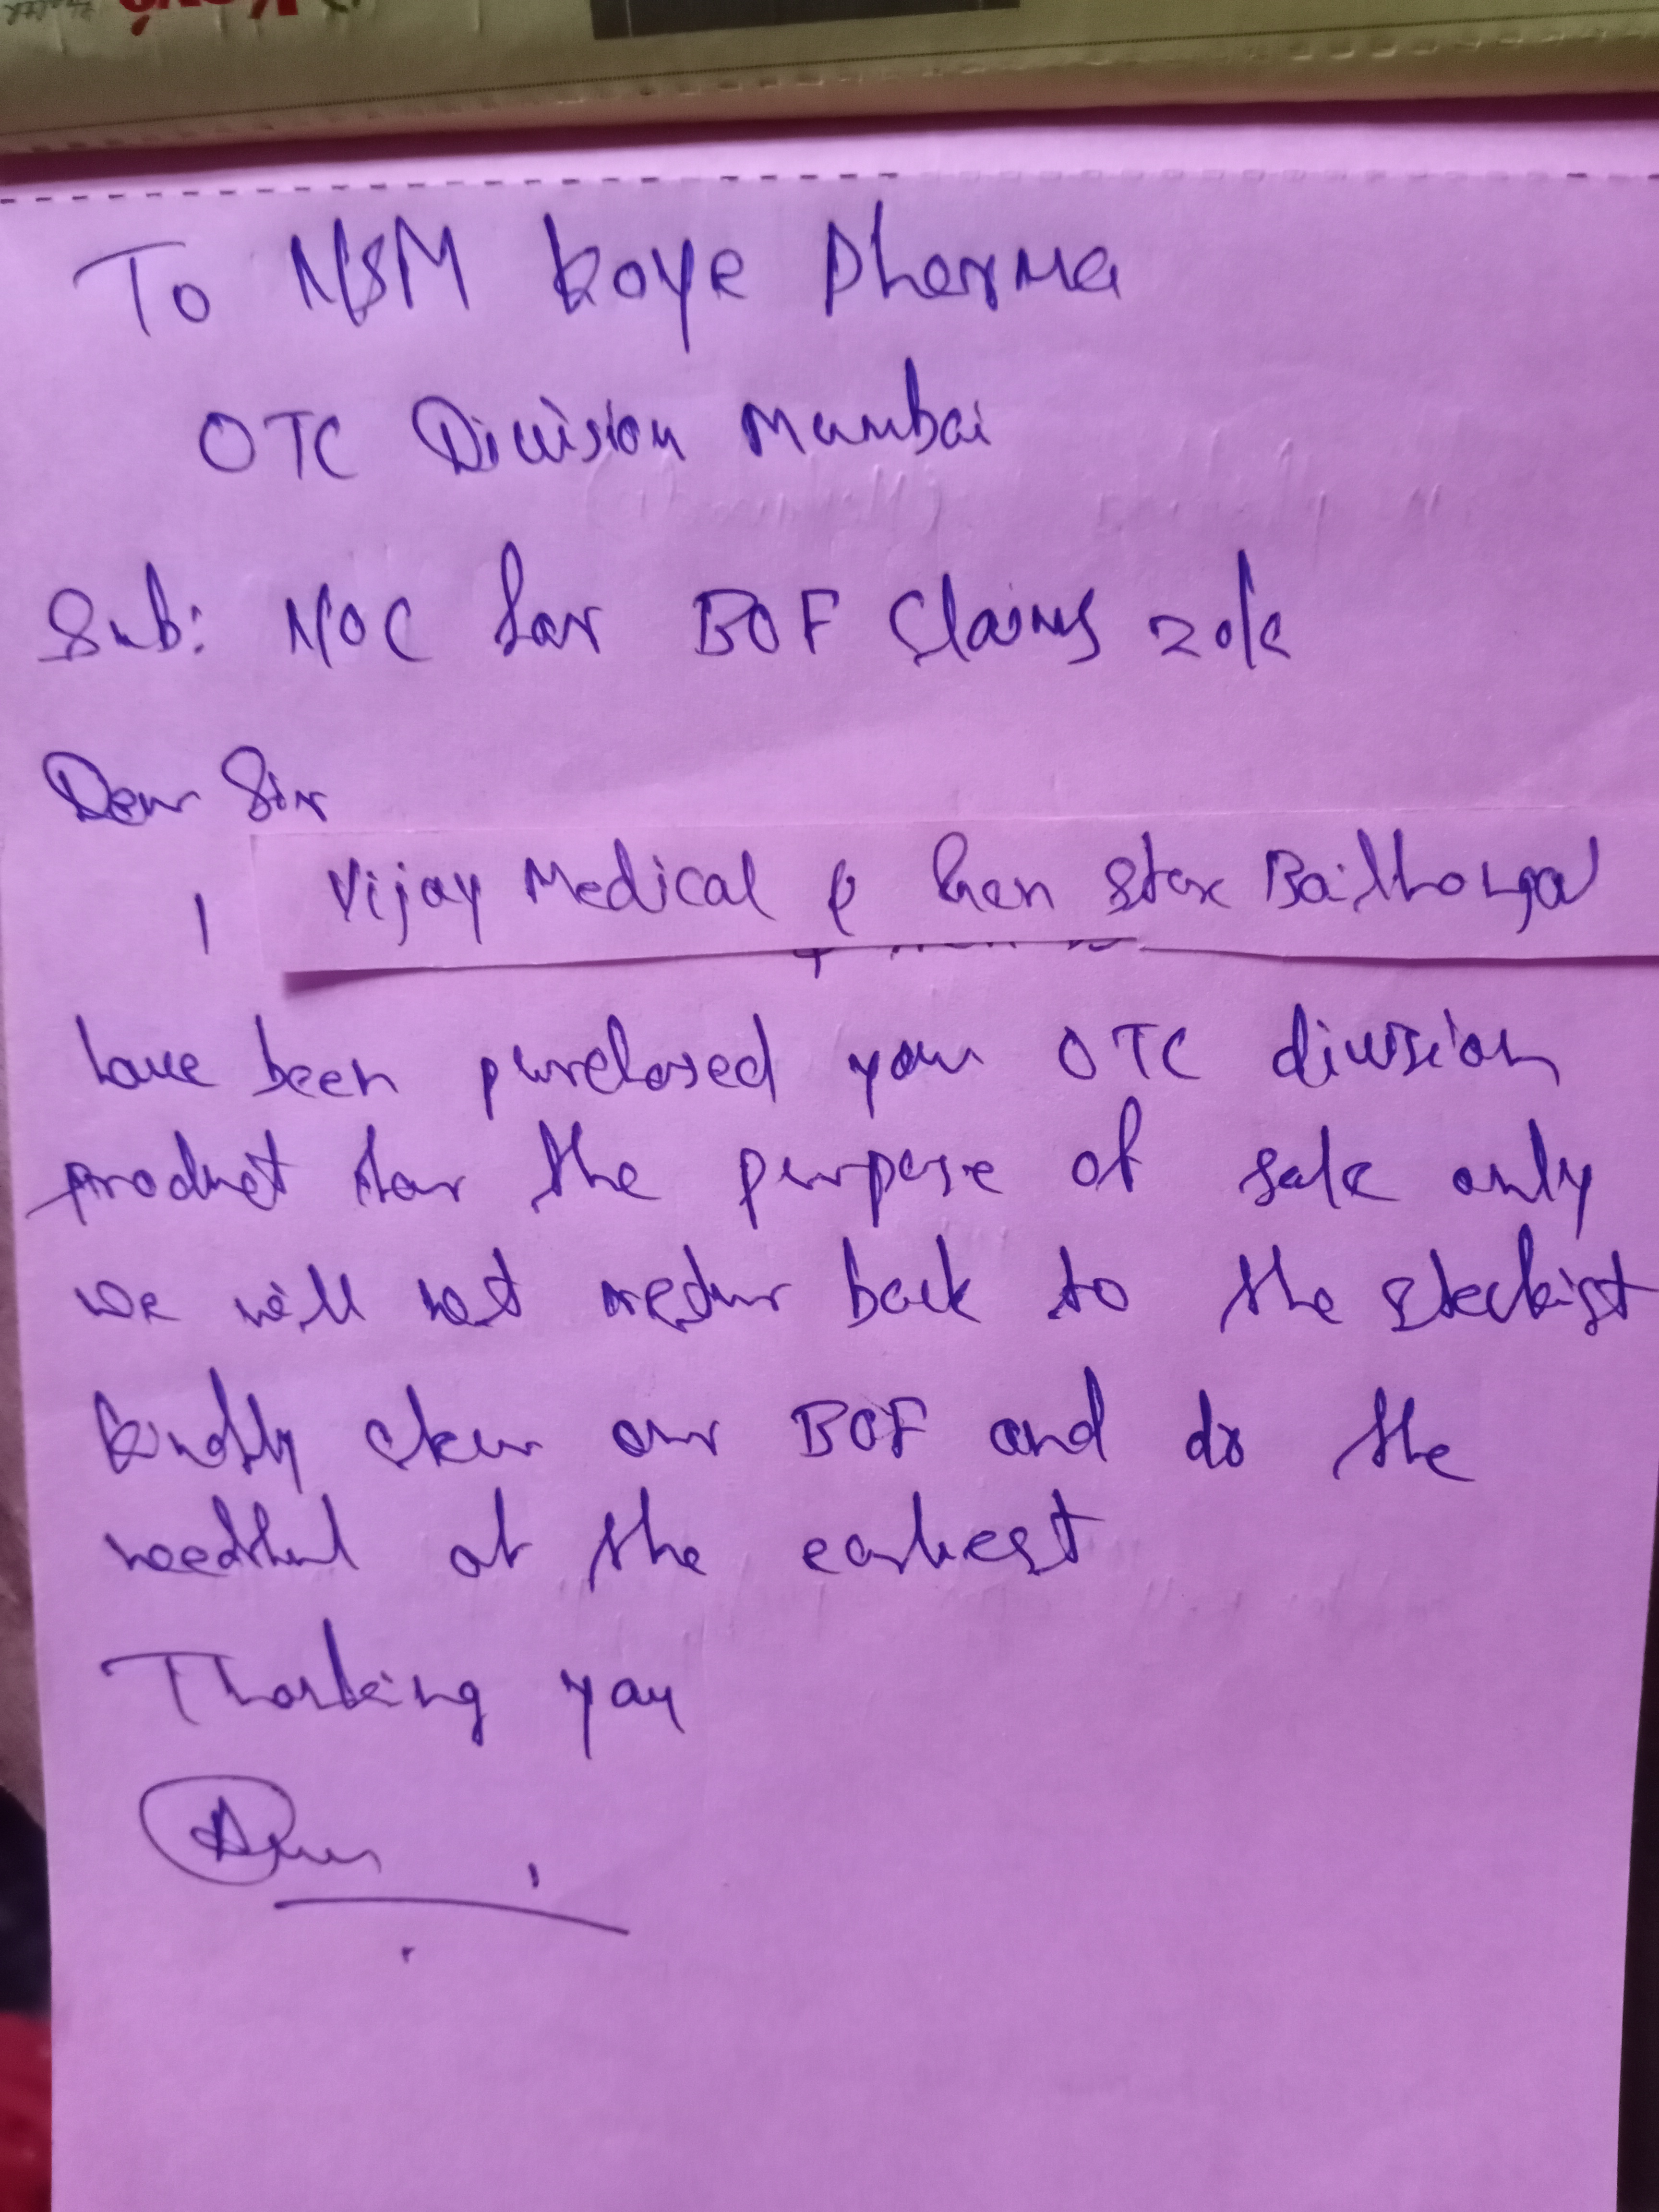 To NSM Koye Pharma
OTC Division Mumbai
Sub: NOC for BOF Claims 20%
Dear Sir
I Vijay Medical & Gen Store Bailhongal
have been purchased your OTC division
product for the purpose of sale only
we will not retur back to the stockist
kindly clear our BOF and do the
needful at the earliest
Thanking you